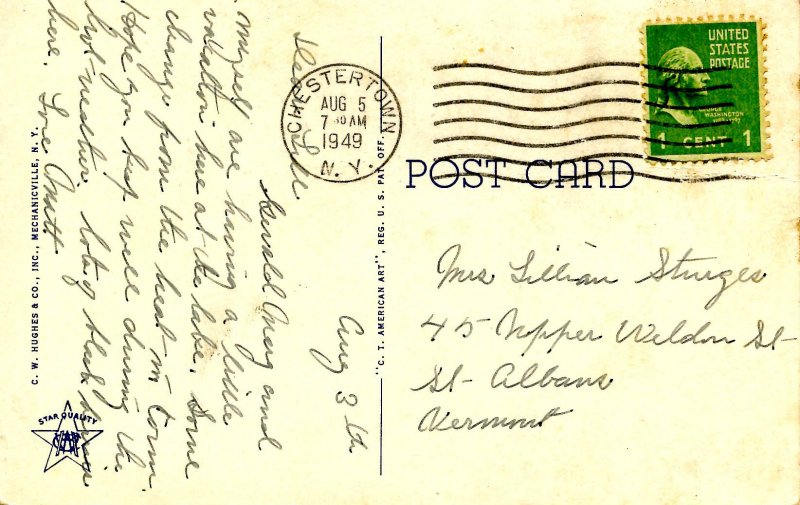 Aug 3th
Dear Lill
Gerald Mary and
myself are having a little
vacation here at the lake. Some
change from the heat in town.
Hope you keep well during the
hot weather. lots of black
here. Love
CHESTERTOWN
AUG 5
7 30 AM
1949
N. Y.
UNITED
STATES
POSTAGE
GEORGE
WASHINGTON
1 CENT 1
POST CARD
Mrs Lillian Sturges
45 Upper Weldon St
St Albans
Vermont
"C. T. AMERICAN ART", REG. U. S. PAT. OFF.
C. W. HUGHES & CO., INC., MECHANICVILLE, N. Y.
STAR QUALITY